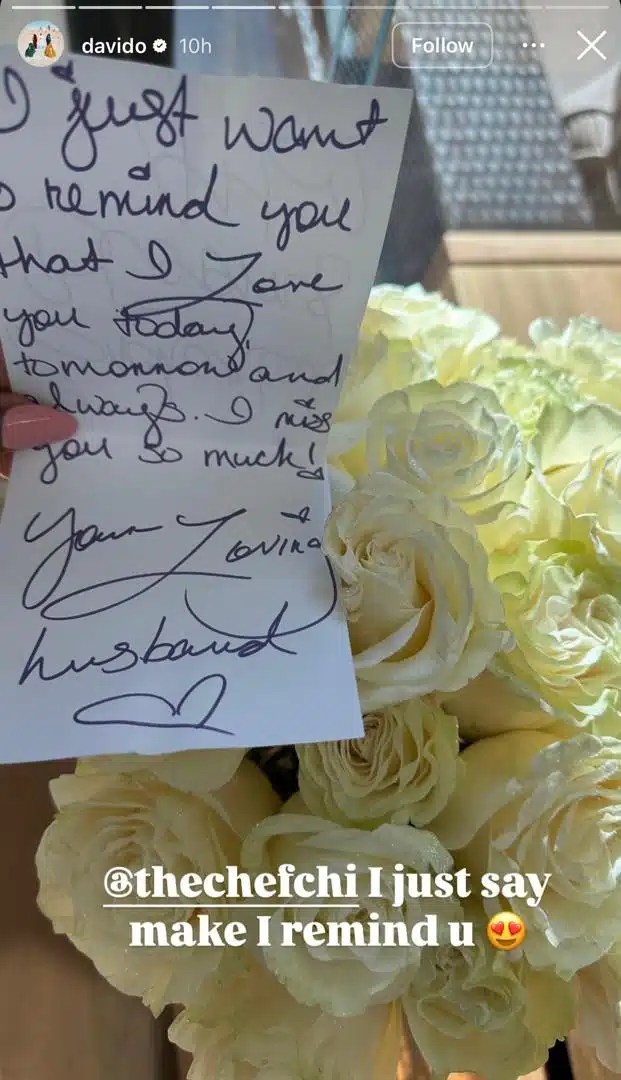 davido 10h Follow
I just want
o remind you
that I Love
you today,
tomorrow and
always. I miss
you so much!
Your Loving
husband
@thechefchi I just say
make I remind u 😍